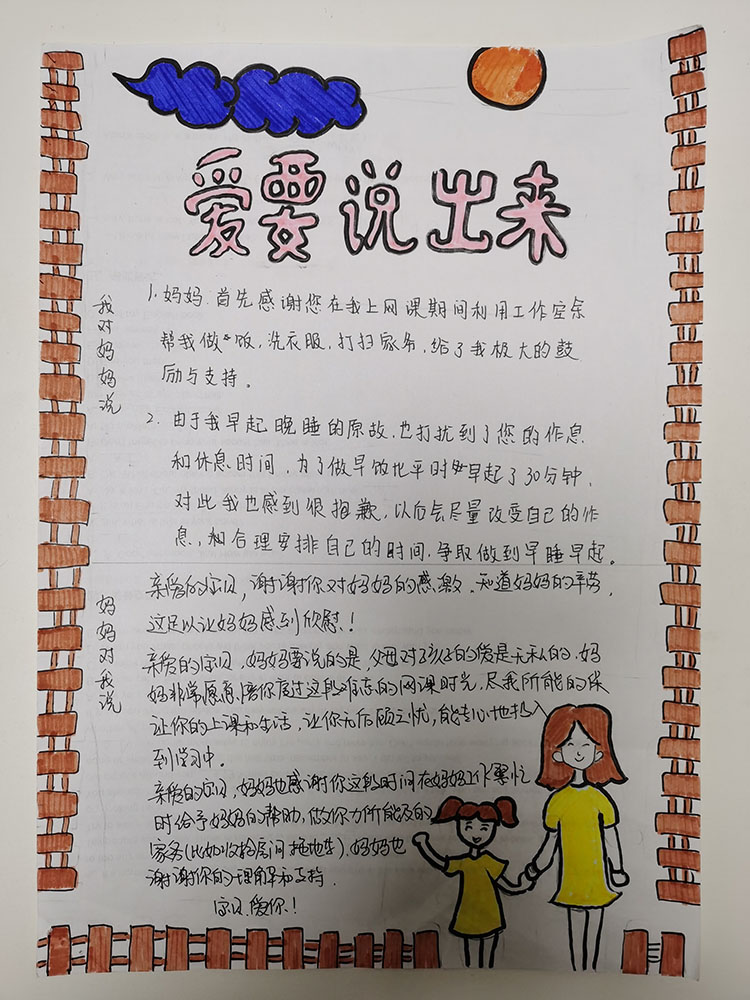 爱要说出来
我对妈妈说
1. 妈妈.首先感谢您在我上网课期间利用工作空余
帮我做饭,洗衣服,打扫家务,给了我极大的鼓
励与支持。
2. 由于我早起晚睡的原故,也打扰到了您的作息
和休息时间,为了做早饭比平时早起了30分钟,
对此我也感到很抱歉,以后会尽量改变自己的作
息,和合理安排自己的时间,争取做到早睡早起。
妈妈对我说
亲爱的宝贝,谢谢你对妈妈的感激.知道妈妈的辛劳,
这足以让妈妈感到欣慰!
亲爱的宝贝,妈妈要说的是,父母对孩子的爱是无私的.妈
妈非常愿意陪你度过这段难忘的网课时光,尽我所能的保
让你的上课和生活,让你无后顾之忧,能专心地投入
到学习中.
亲爱的宝贝,妈妈也感谢你这段时间在妈妈工作繁忙
时给予妈妈的帮助,做你力所能及的
家务(比如收拾房间 拖地等).妈妈也
谢谢你的理解和支持.
宝贝.爱你!